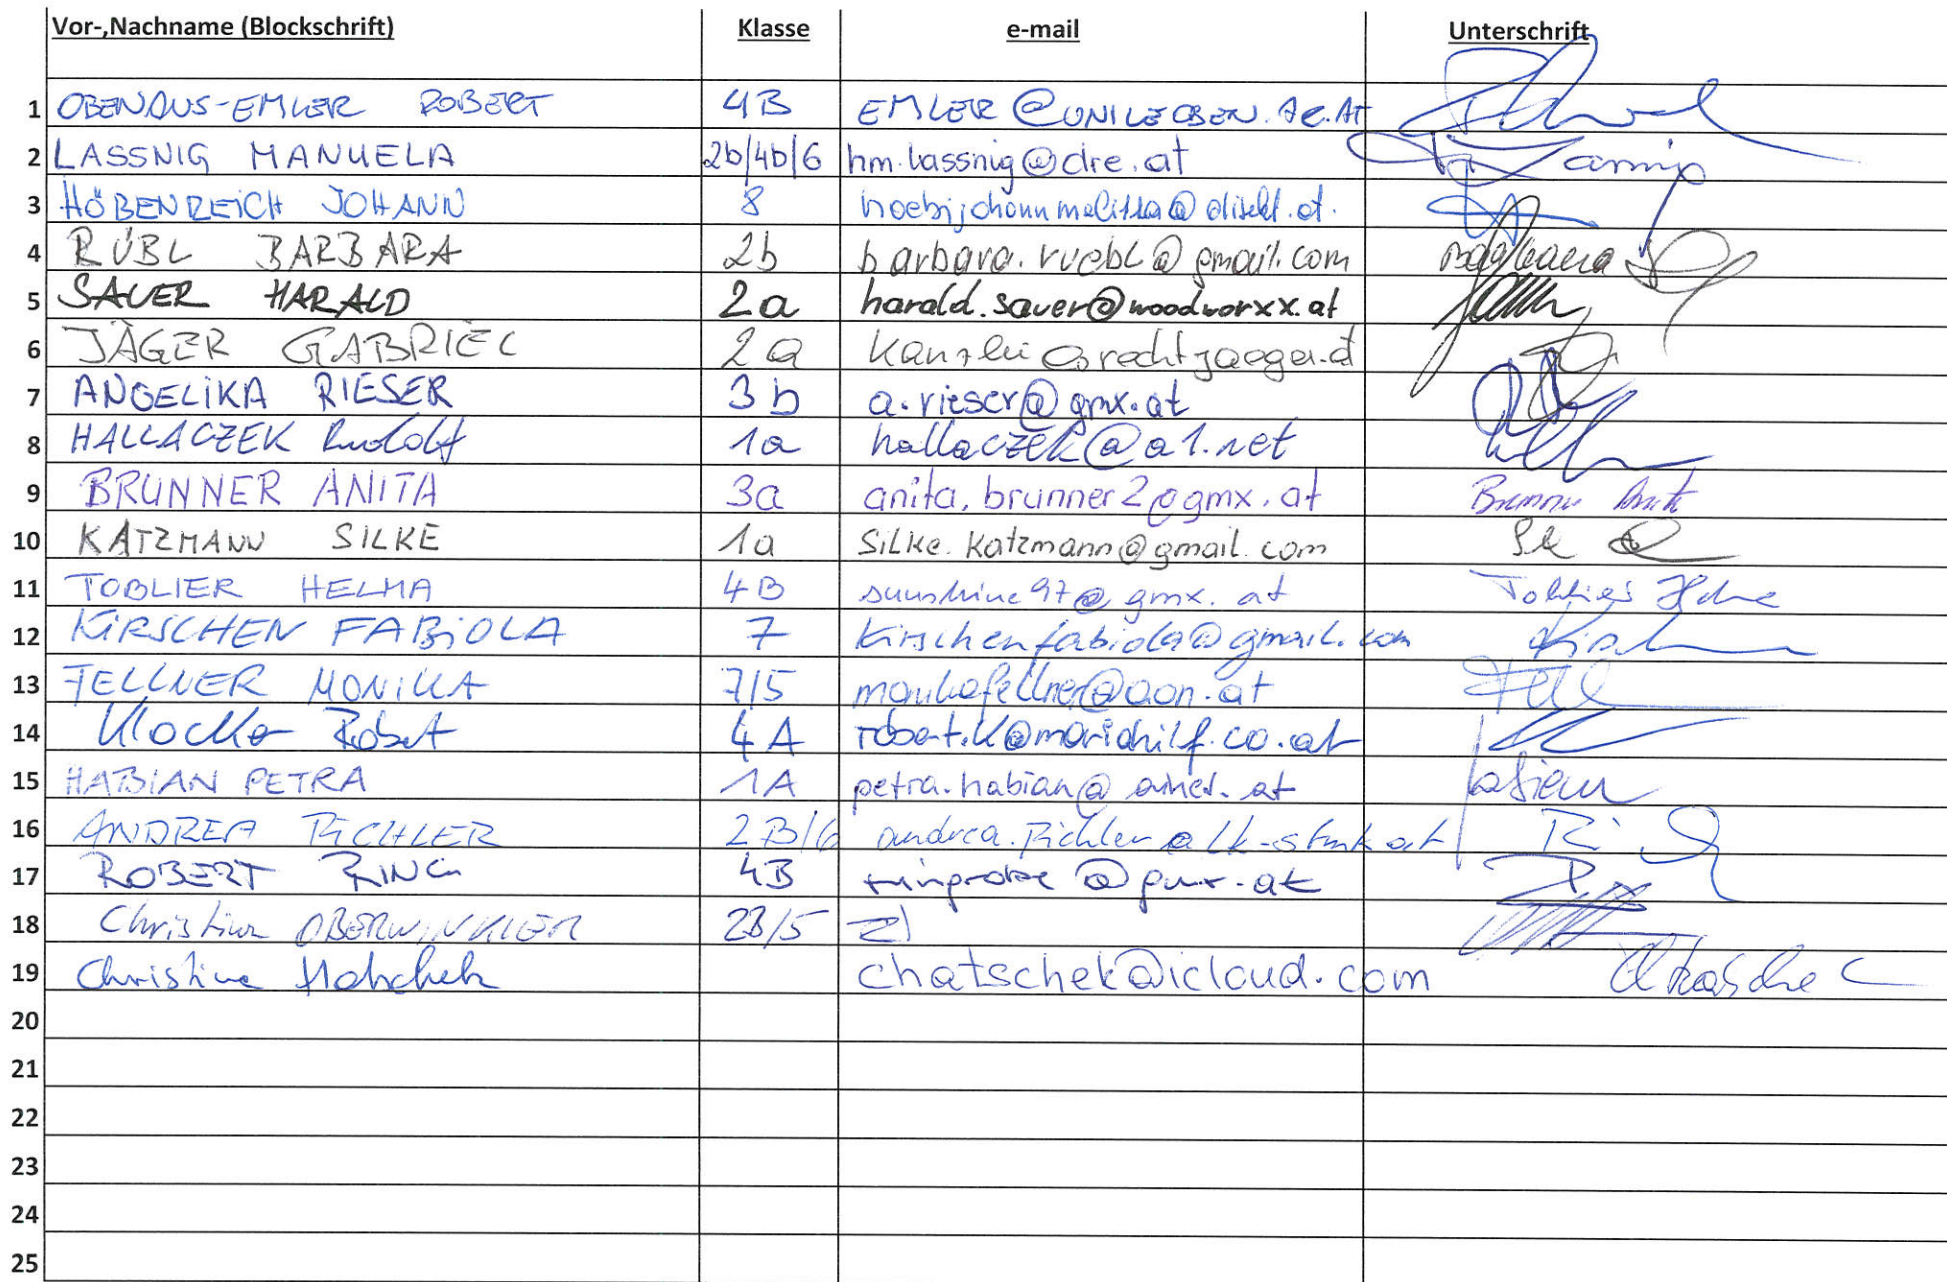 Vor-,Nachname (Blockschrift) Klasse e-mail Unterschrift
1 OBENAUS-EMLER ROBERT 4B EMLER@UNILEOBEN.AC.AT
2 LASSNIG MANUELA 2b/4b/6 hm.lassnig@dre.at
3 HÖBENREICH JOHANN 8
4 RÜBL BARBARA 2b barbara.ruebl@gmail.com Barbara
5 SAUER HARALD 2a harald.sauer@woodworxx.at
6 JÄGER GABRIEL 2a
7 ANGELIKA RIESER 3b a.rieser@gmx.at
8 HALLACZEK Rudolf 1a hallaczek@a1.net
9 BRUNNER ANITA 3a anita.brunner2@gmx.at Brunner Anita
10 KATZMANN SILKE 1a Silke.Katzmann@gmail.com
11 TOBLIER HELMA 4B sunshine97@gmx.at Toblier Helma
12 KIRSCHEN FABIOLA 7 kirschenfabiola@gmail.com
13 FELLNER MONIKA 7/5 monikafellner@aon.at
14 Klocker Robert 4A robert.k@mariahilf.co.at
15 HABIAN PETRA 1A petra.habian@ainet.at Habian
16 ANDREA PICHLER 2B/6 andrea.pichler@lk-stmk.at
17 ROBERT RING 4B
18 Christian OBERWINKLER 2B/5
19 Christine Hatschek chatschek@icloud.com
20
21
22
23
24
25